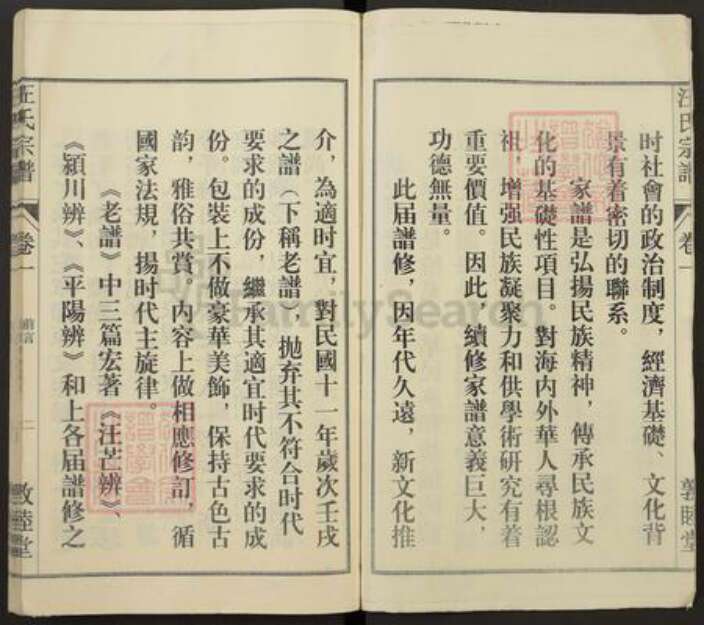 汪氏宗譜
卷一
敦睦堂
時社會的政治制度，經濟基礎、文化背
景有着密切的聯系。
家譜是弘揚民族精神，傳承民族文
化的基礎性項目。對海內外華人尋根認
祖，增强民族凝聚力和供學術研究有着
重要價值。因此，續修家譜意義巨大，
功德無量。
此届譜修，因年代久遠，新文化推
介，為適时宜，對民國十一年歲次壬戌
之譜（下稱老譜），抛弃其不符合时代
要求的成份，繼承其適宜时代要求的成
份。包裝上不做豪華美飾，保持古色古
韵，雅俗共賞。内容上做相應修訂，循
國家法規，揚时代主旋律。
《老譜》中三篇宏著《汪芒辨》、
《潁川辨》、《平陽辨》和上各届譜修之
汪氏宗譜
卷一
前言
二
敦睦堂
FamilySearch